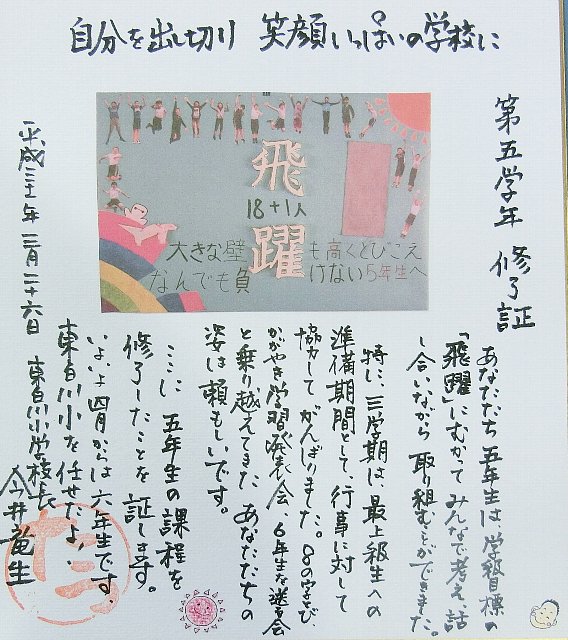 自分を出し切り 笑顔いっぱいの学校に
飛躍
18+1人
大きな壁も高くとびこえ
なんでも負けない5年生へ
第五学年 修了証
あなたたち五年生は、学級目標の
「飛躍」にむかって みんなで考え、話
し合いながら 取り組むことができました。
特に、三学期は、最上級生への
準備期間として、行事に対して
協力して がんばりました。8の字とび、
かがやき学習発表会、6年生を送る会
と乗り越えてきた あなたたちの
姿は頼もしいです。
ここに 五年生の課程を
修了したことを 証します。
いよいよ四月からは六年生です。
東白川小を任せたよ。
東白川小学校長 今井竜生
平成三十一年 三月二十六日